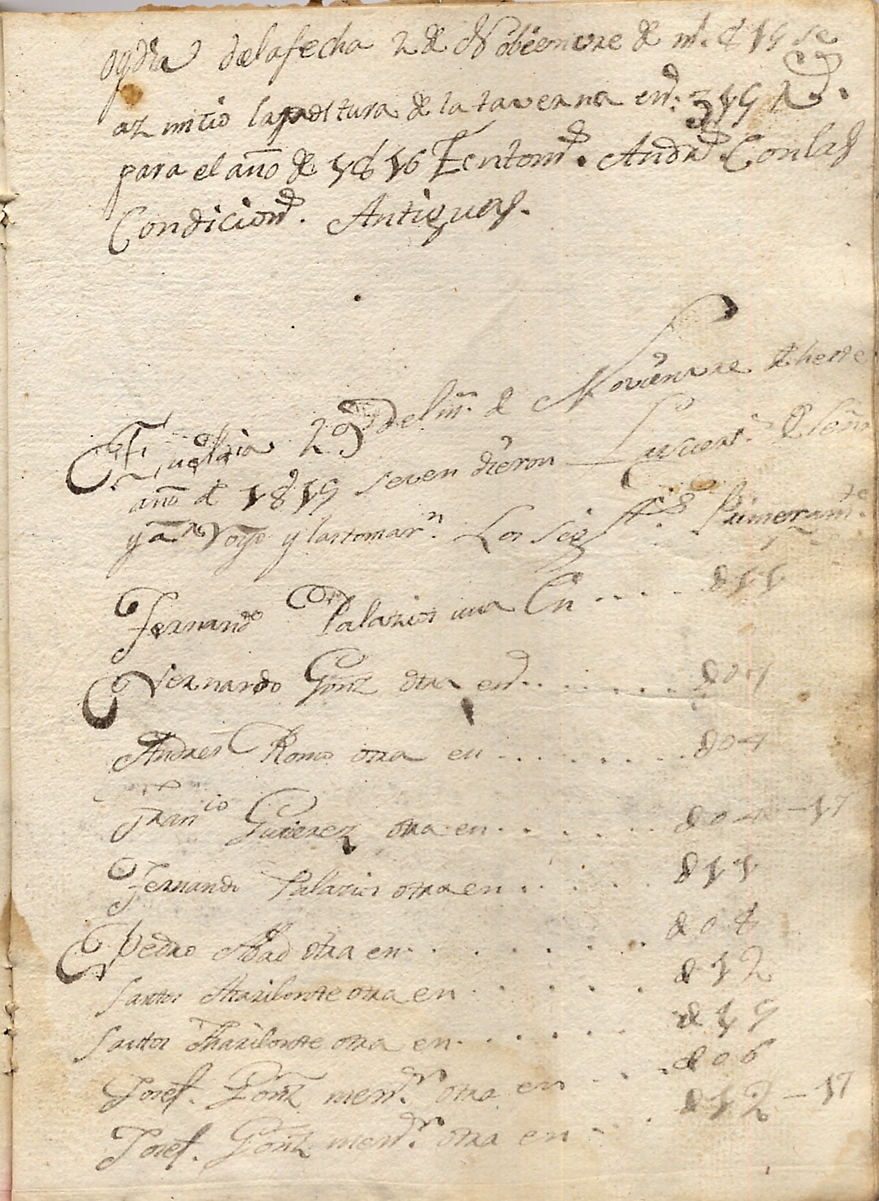 oy dia dela fecha 2 de Nobienvre de 1815 se
az mitio la postura de la taverna en 315 Rd.
para el año de 1816 En tomd. Andrd. Con las
Condiciond. Antiguas.
En el dia 29 del m. de Noviemvre de heste
año de 1815 se ven dieron Las suert. de
y las tomarn. Los sigtes Primeramte
Fernando Palazios una En .... 811
Vernardo Gonz otra en ........ 804
Andres Romo otra en ........ 804
Franco Gutierez otra en ...... 804 - 17
Fernando Palacios otra en ..... 811
Pedro Abad otra en ....... 808
Santos otra en ...... 812
Santos otra en ...... 815
Josef. Gonz menr. otra en .... 806
Josef. Gonz menr. otra en ... 812 - 17